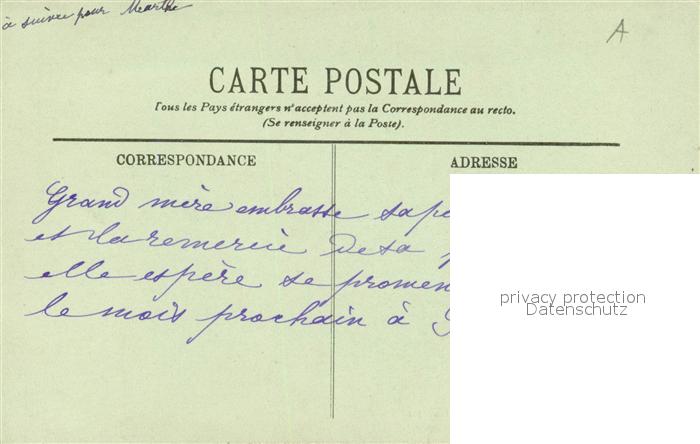 à suivre pour Marthe
A
CARTE POSTALE
Tous les Pays étrangers n'acceptent pas la Correspondance au recto.
(Se renseigner à la Poste).
CORRESPONDANCE
ADRESSE
Grand mère embrasse sa
et la remercie de sa
elle espère se promen
le mois prochain à
privacy protection
Datenschutz